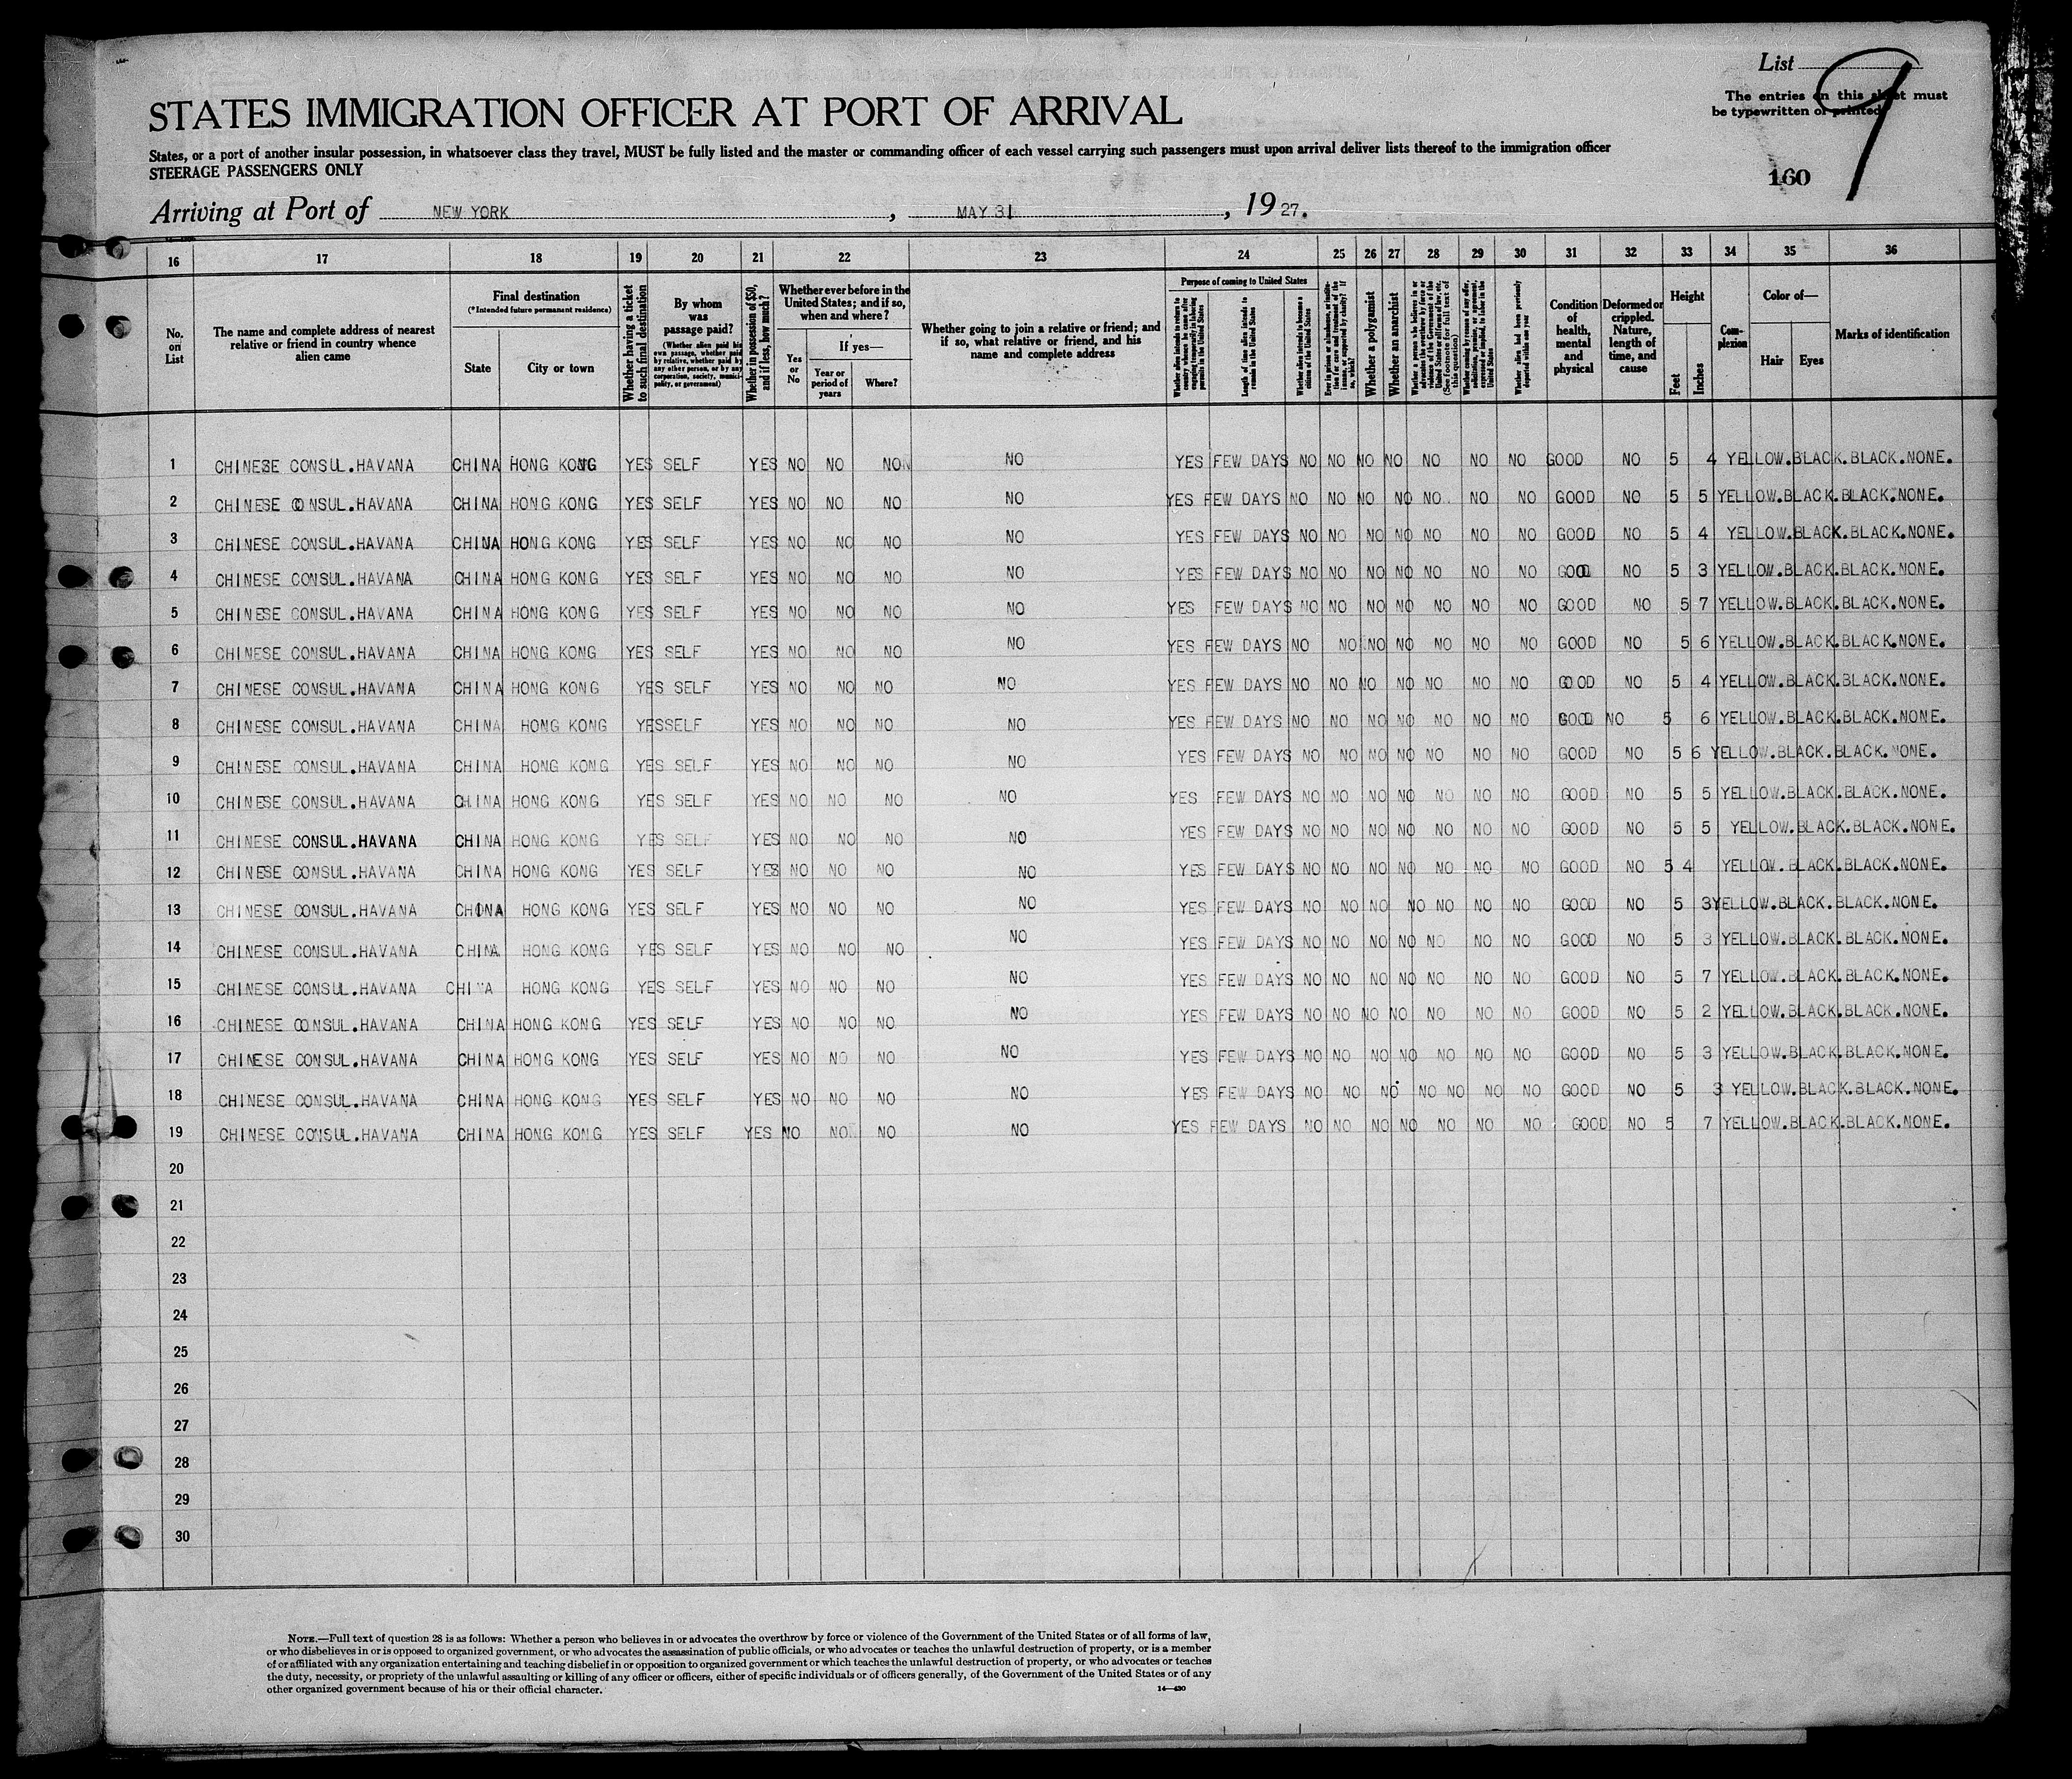 List 9
The entries on this sheet must
be typewritten or printed
160
STATES IMMIGRATION OFFICER AT PORT OF ARRIVAL
States, or a port of another insular possession, in whatsoever class they travel, MUST be fully listed and the master or commanding officer of each vessel carrying such passengers must upon arrival deliver lists thereof to the immigration officer
STEERAGE PASSENGERS ONLY
Arriving at Port of NEW YORK, MAY 31, 1927.
16 17 18 19 20 21 22 23 24 25 26 27 28 29 30 31 32 33 34 35 36
No. on List
The name and complete address of nearest relative or friend in country whence alien came
Final destination
(*Intended future permanent residence)
State
City or town
Whether having a ticket to such final destination
By whom was passage paid?
(Whether alien paid his own passage, whether paid by relative, whether paid by any other person, or by any corporation, society, municipality, or government)
Whether in possession of $50, and if less, how much?
Whether ever before in the United States; and if so, when and where?
Yes or No
If yes—
Year or period of years
Where?
Whether going to join a relative or friend; and if so, what relative or friend, and his name and complete address
Purpose of coming to United States
Whether alien intends to return to country whence he came after engaging temporarily in laboring pursuits in the United States
Length of time alien intends to remain in the United States
Whether alien intends to become a citizen of the United States
Whether a polygamist
Whether an anarchist
(See footnote for full text of this question)
Whether alien had been previously deported within one year
Condition of health, mental and physical
Deformed or crippled. Nature, length of time, and cause
Height
Feet
Inches
Complexion
Color of—
Hair
Eyes
Marks of identification
1 CHINESE CONSUL.HAVANA CHINA HONG KONG YES SELF YES NO NO NO NO YES FEW DAYS NO NO NO NO NO NO NO GOOD NO 5 4 YELLOW.BLACK.BLACK.NONE.
2 CHINESE CONSUL.HAVANA CHINA HONG KONG YES SELF YES NO NO NO NO YES FEW DAYS NO NO NO NO NO NO NO GOOD NO 5 5 YELLOW.BLACK.BLACK.NONE.
3 CHINESE CONSUL.HAVANA CHINA HONG KONG YES SELF YES NO NO NO NO YES FEW DAYS NO NO NO NO NO NO NO GOOD NO 5 4 YELLOW.BLACK.BLACK.NONE.
4 CHINESE CONSUL.HAVANA CHINA HONG KONG YES SELF YES NO NO NO NO YES FEW DAYS NO NO NO NO NO NO NO GOOD NO 5 3 YELLOW.BLACK.BLACK.NONE.
5 CHINESE CONSUL.HAVANA CHINA HONG KONG YES SELF YES NO NO NO NO YES FEW DAYS NO NO NO NO NO NO NO GOOD NO 5 7 YELLOW.BLACK.BLACK.NONE.
6 CHINESE CONSUL.HAVANA CHINA HONG KONG YES SELF YES NO NO NO NO YES FEW DAYS NO NO NO NO NO NO NO GOOD NO 5 6 YELLOW.BLACK.BLACK.NONE.
7 CHINESE CONSUL.HAVANA CHINA HONG KONG YES SELF YES NO NO NO NO YES FEW DAYS NO NO NO NO NO NO NO GOOD NO 5 4 YELLOW.BLACK.BLACK.NONE.
8 CHINESE CONSUL.HAVANA CHINA HONG KONG YESSELF YES NO NO NO NO YES FEW DAYS NO NO NO NO NO NO NO GOOD NO 5 6 YELLOW.BLACK.BLACK.NONE.
9 CHINESE CONSUL.HAVANA CHINA HONG KONG YES SELF YES NO NO NO NO YES FEW DAYS NO NO NO NO NO NO NO GOOD NO 5 6 YELLOW.BLACK.BLACK.NONE.
10 CHINESE CONSUL.HAVANA CHINA HONG KONG YES SELF YES NO NO NO NO YES FEW DAYS NO NO NO NO NO NO NO GOOD NO 5 5 YELLOW.BLACK.BLACK.NONE.
11 CHINESE CONSUL.HAVANA CHINA HONG KONG YES SELF YES NO NO NO NO YES FEW DAYS NO NO NO NO NO NO NO GOOD NO 5 5 YELLOW.BLACK.BLACK.NONE.
12 CHINESE CONSUL.HAVANA CHINA HONG KONG YES SELF YES NO NO NO NO YES FEW DAYS NO NO NO NO NO NO NO GOOD NO 5 4 YELLOW.BLACK.BLACK.NONE.
13 CHINESE CONSUL.HAVANA CHINA HONG KONG YES SELF YES NO NO NO NO YES FEW DAYS NO NO NO NO NO NO NO GOOD NO 5 3 YELLOW.BLACK.BLACK.NONE.
14 CHINESE CONSUL.HAVANA CHINA HONG KONG YES SELF YES NO NO NO NO YES FEW DAYS NO NO NO NO NO NO NO GOOD NO 5 3 YELLOW.BLACK.BLACK.NONE.
15 CHINESE CONSUL.HAVANA CHINA HONG KONG YES SELF YES NO NO NO NO YES FEW DAYS NO NO NO NO NO NO NO GOOD NO 5 7 YELLOW.BLACK.BLACK.NONE.
16 CHINESE CONSUL.HAVANA CHINA HONG KONG YES SELF YES NO NO NO NO YES FEW DAYS NO NO NO NO NO NO NO GOOD NO 5 2 YELLOW.BLACK.BLACK.NONE.
17 CHINESE CONSUL.HAVANA CHINA HONG KONG YES SELF YES NO NO NO NO YES FEW DAYS NO NO NO NO NO NO NO GOOD NO 5 3 YELLOW.BLACK.BLACK.NONE.
18 CHINESE CONSUL.HAVANA CHINA HONG KONG YES SELF YES NO NO NO NO YES FEW DAYS NO NO NO NO NO NO NO GOOD NO 5 3 YELLOW.BLACK.BLACK.NONE.
19 CHINESE CONSUL.HAVANA CHINA HONG KONG YES SELF YES NO NO NO NO YES FEW DAYS NO NO NO NO NO NO NO GOOD NO 5 7 YELLOW.BLACK.BLACK.NONE.
20
21
22
23
24
25
26
27
28
29
30
NOTE.—Full text of question 28 is as follows: Whether a person who believes in or advocates the overthrow by force or violence of the Government of the United States or of all forms of law,
or who disbelieves in or is opposed to organized government, or who advocates the assassination of public officials, or who advocates or teaches the unlawful destruction of property, or is a member
of or affiliated with any organization entertaining and teaching disbelief in or opposition to organized government or which teaches the unlawful destruction of property, or who advocates or teaches
the duty, necessity, or propriety of the unlawful assaulting or killing of any officer or officers, either of specific individuals or of officers generally, of the Government of the United States or of any
other organized government because of his or their official character.
14—430